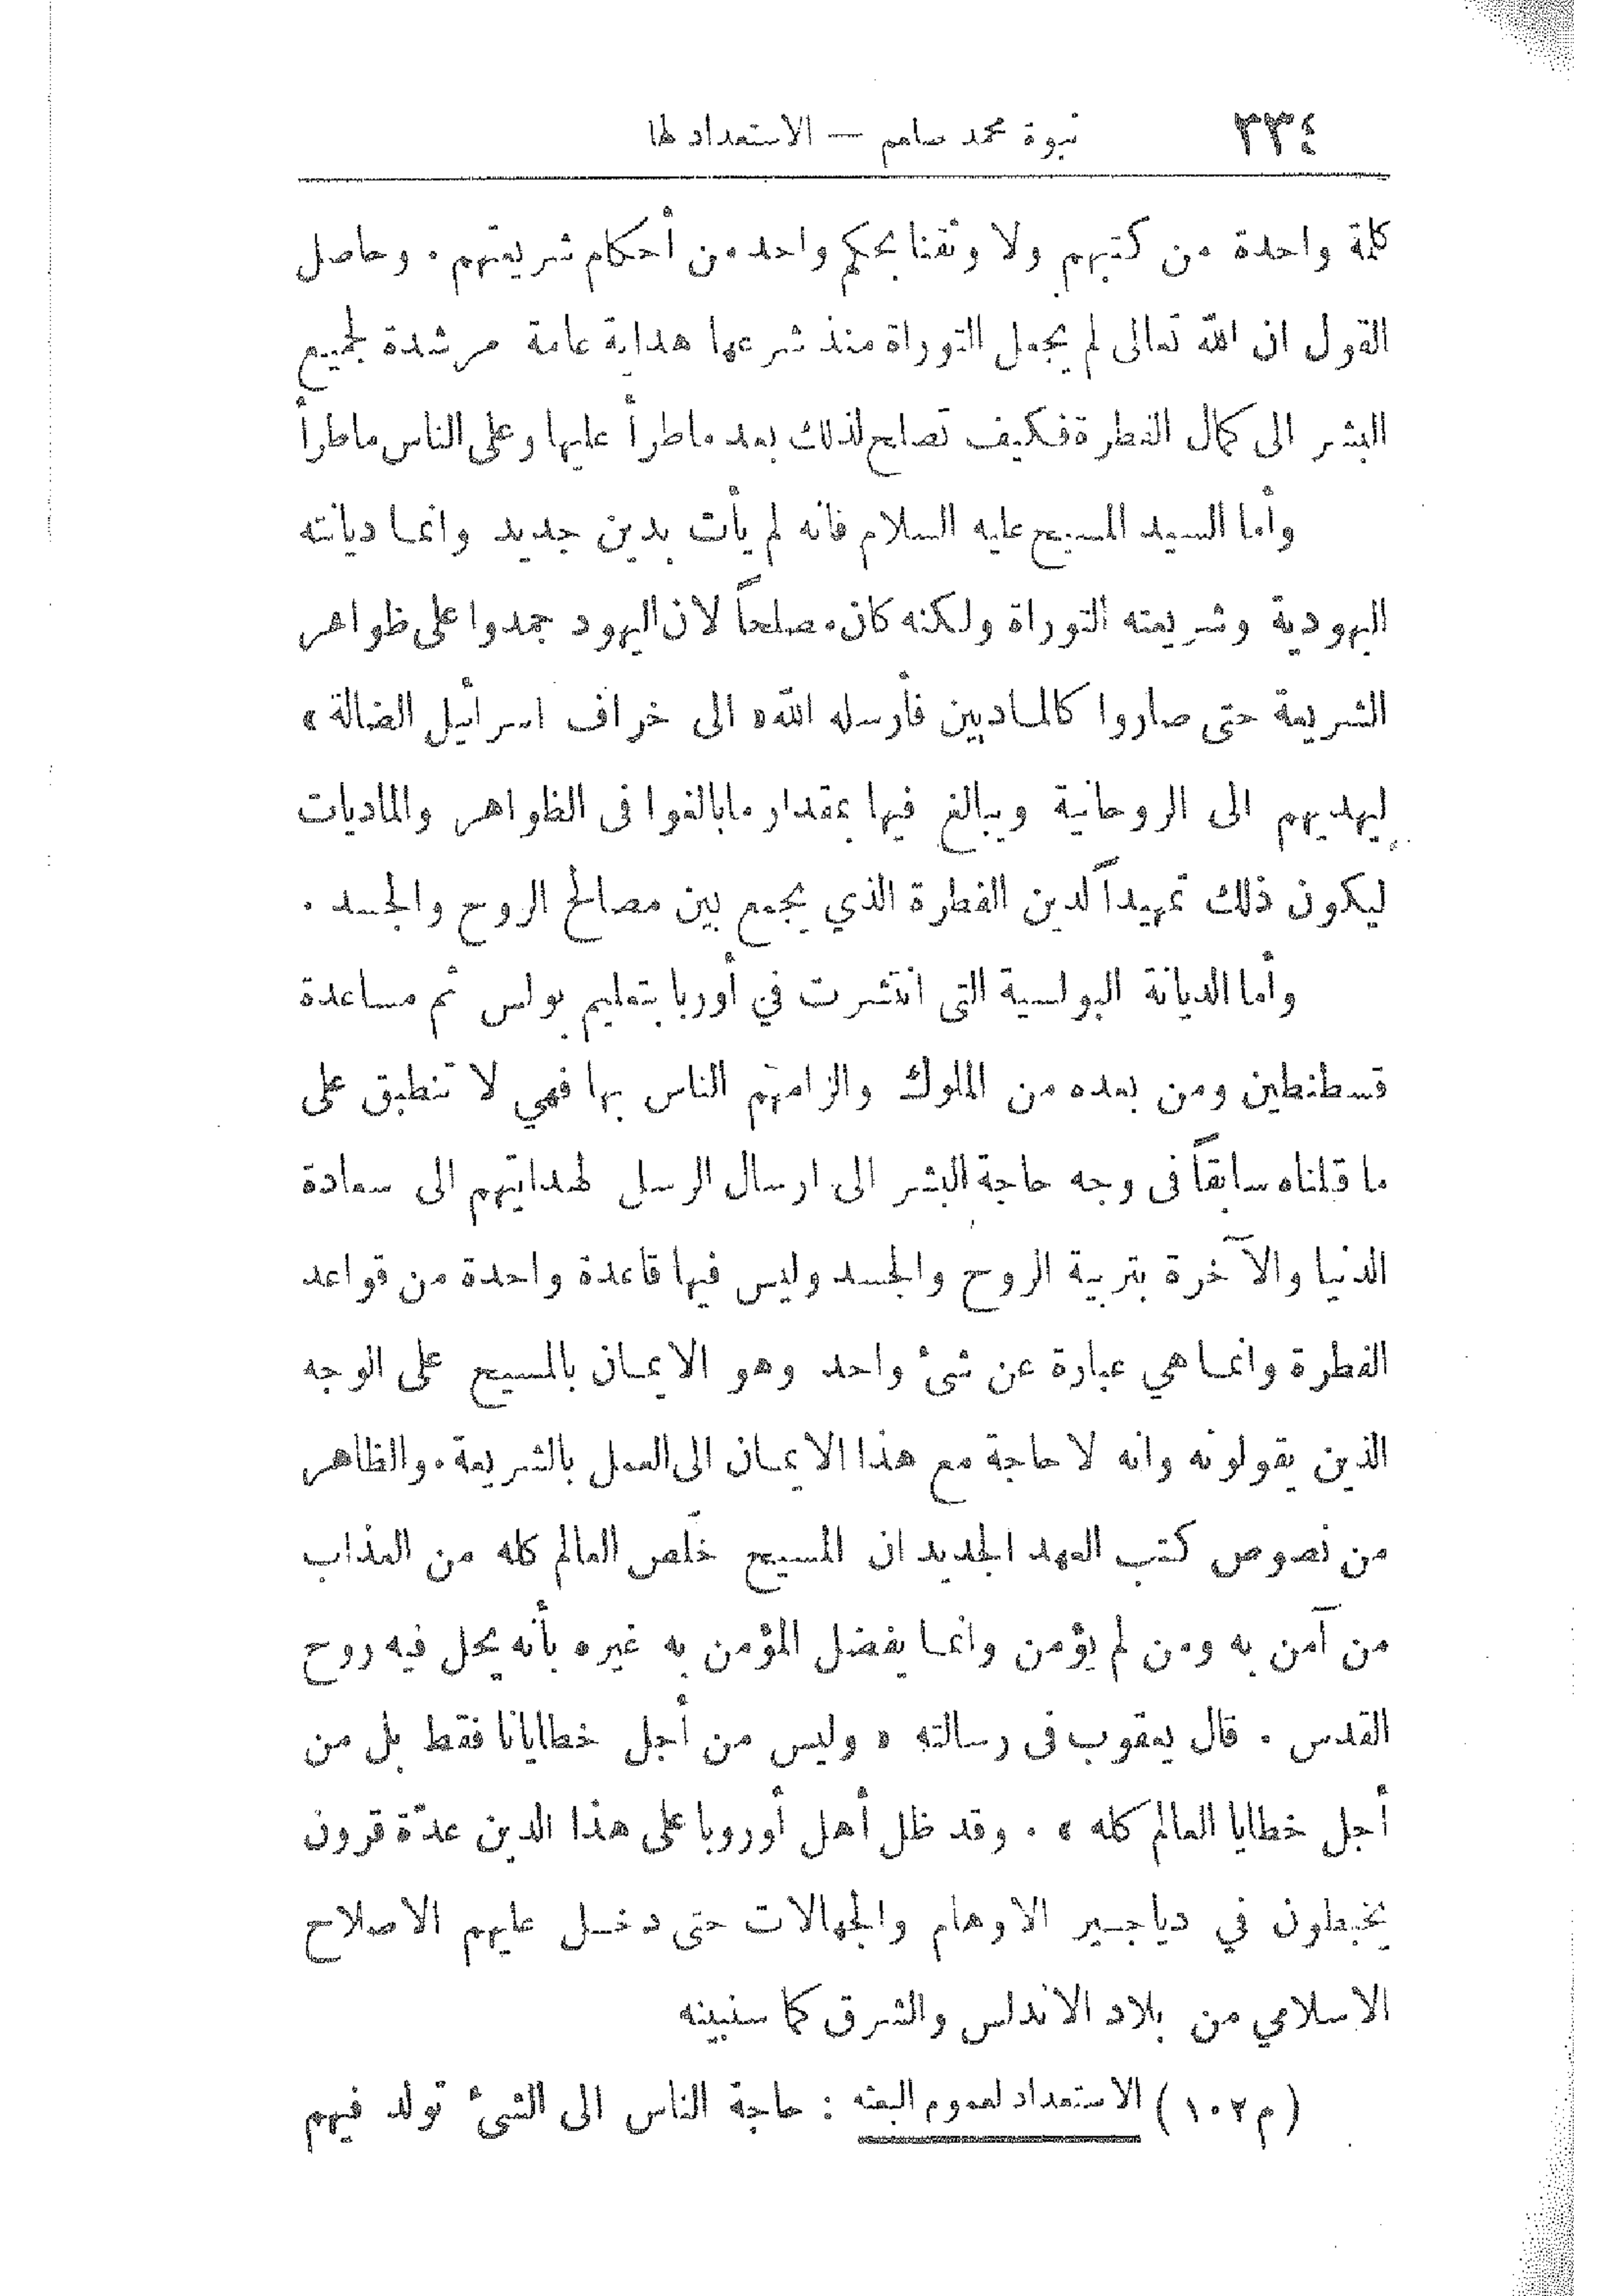 ٣٣٤ نبوة محمد صلعم — الاستعداد لها
كلمة واحدة من كتبهم ولا وثقنا بحكم واحد من أحكام شريعتهم . وحاصل
القول ان الله تعالى لم يجعل التوراة منذ شرعها هداية عامة مرشدة لجميع
البشر الى كمال الفطرة فكيف تصلح لذلك بعد ما طرأ عليها وعلى الناس ما طرأ
وأما السيد المسيح عليه السلام فانه لم يأت بدين جديد وانما ديانته
اليهودية وشريعته التوراة ولكنه كان مصلحاً لان اليهود جمدوا على ظواهر
الشريعة حتى صاروا كالماديين فأرسله الله « الى خراف اسرائيل الضالة »
ليهديهم الى الروحانية ويبالغ فيها بمقدار ما بالغوا فى الظواهر والماديات
ليكون ذلك تمهيداً لدين الفطرة الذي يجمع بين مصالح الروح والجسد .
وأما الديانة البولسية التى انتشرت في أوربا بتعليم بولس ثم مساعدة
قسطنطين ومن بعده من الملوك والزامهم الناس بها فهي لا تنطبق على
ما قلناه سابقاً فى وجه حاجة البشر الى ارسال الرسل لهدايتهم الى سعادة
الدنيا والآخرة بتربية الروح والجسد وليس فيها قاعدة واحدة من قواعد
الفطرة وانما هي عبارة عن شىء واحد وهو الايمان بالمسيح على الوجه
الذين يقولونه وانه لا حاجة مع هذا الايمان الى العمل بالشريعة . والظاهر
من نصوص كتب العهد الجديد ان المسيح خلّص العالم كله من العذاب
من آمن به ومن لم يؤمن وانما يفضل المؤمن به غيره بأنه يحل فيه روح
القدس . قال يعقوب فى رسالته « وليس من أجل خطايانا فقط بل من
أجل خطايا العالم كله » . وقد ظل أهل أوروبا على هذا الدين عدّة قرون
يخبطون في دياجير الاوهام والجهالات حتى دخل عليهم الاصلاح
الاسلامي من بلاد الاندلس والشرق كما سنبينه
(م ١٠٢) الاستعداد لعموم البعثه : حاجة الناس الى الشىء تولد فيهم